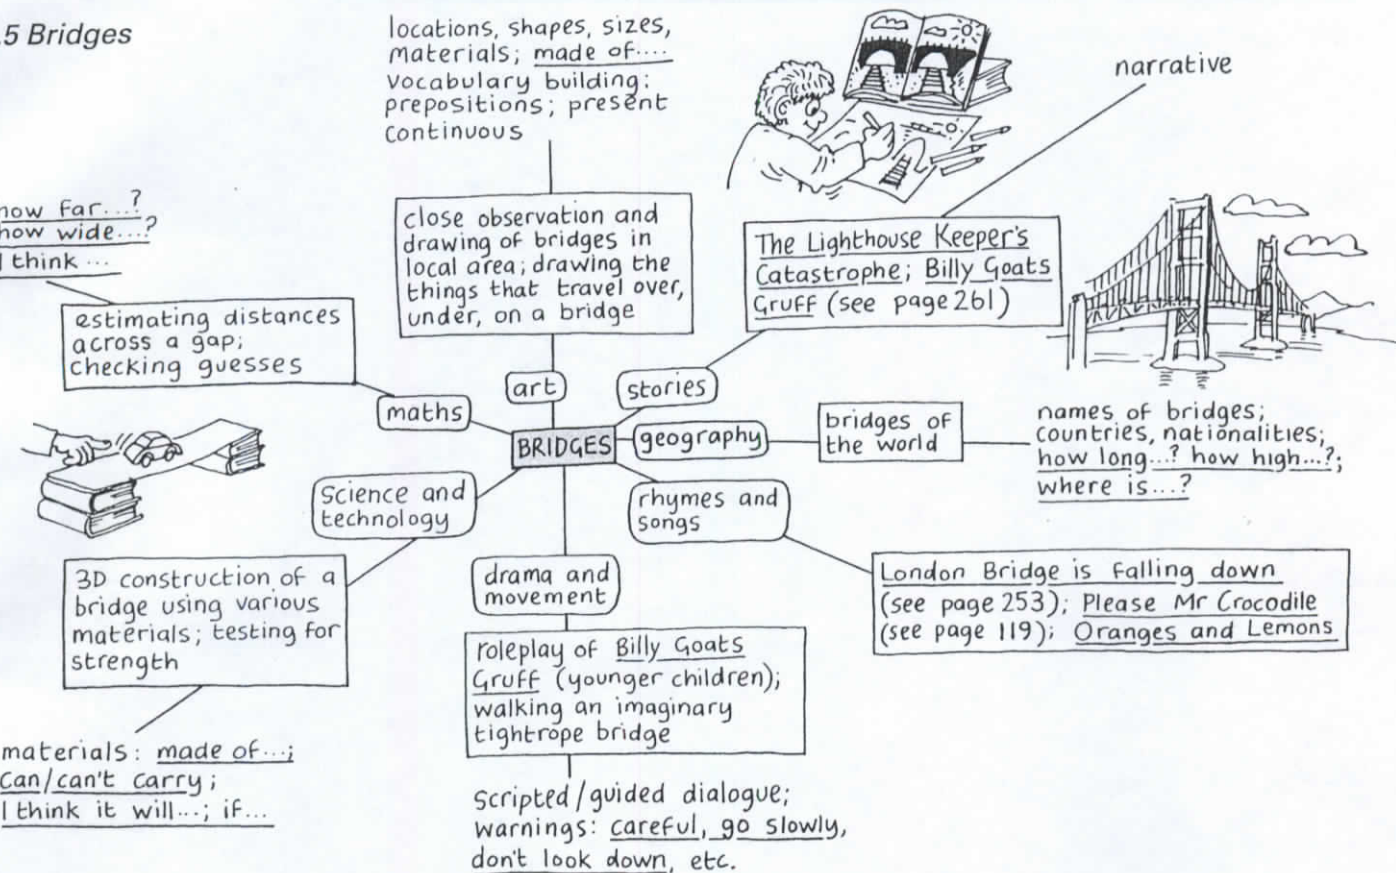 .5 Bridges
locations, shapes, sizes,
materials; made of....
vocabulary building:
prepositions; present
continuous
narrative
how far...?
how wide...?
I think ...
close observation and
drawing of bridges in
local area; drawing the
things that travel over,
under, on a bridge
The Lighthouse Keeper's
Catastrophe; Billy Goats
Gruff (see page 261)
estimating distances
across a gap;
checking guesses
art
stories
maths
BRIDGES
geography
bridges of
the world
names of bridges;
countries, nationalities;
how long...? how high...?;
where is...?
Science and
technology
rhymes and
songs
3D construction of a
bridge using various
materials; testing for
strength
drama and
movement
London Bridge is falling down
(see page 253); Please Mr Crocodile
(see page 119); Oranges and Lemons
roleplay of Billy Goats
Gruff (younger children);
walking an imaginary
tightrope bridge
materials: made of...;
can/can't carry;
I think it will...; if...
Scripted/guided dialogue;
warnings: careful, go slowly,
don't look down, etc.